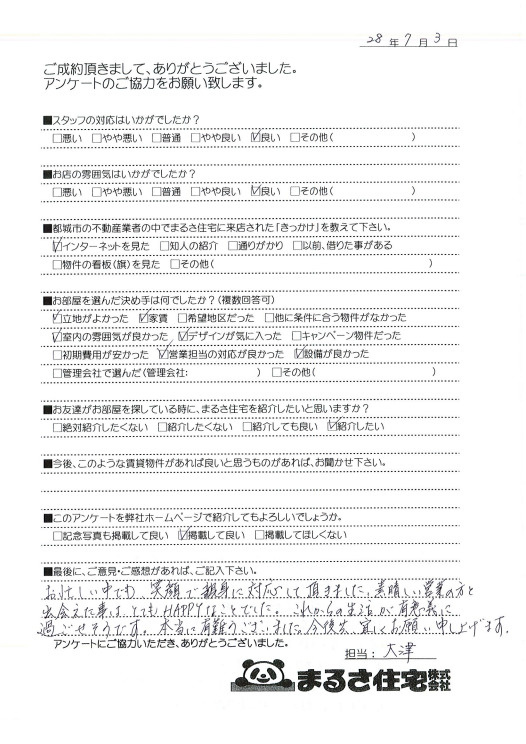 28年7月3日
ご成約頂きまして、ありがとうございました。
アンケートのご協力をお願い致します。
■スタッフの対応はいかがでしたか？
□悪い □やや悪い □普通 □やや良い ☑良い □その他( )
■お店の雰囲気はいかがでしたか？
□悪い □やや悪い □普通 □やや良い ☑良い □その他( )
■都城市の不動産業者の中でまるさ住宅に来店された「きっかけ」を教えて下さい。
☑インターネットを見た □知人の紹介 □通りがかり □以前、借りた事がある
□物件の看板(旗)を見た □その他( )
■お部屋を選んだ決め手は何でしたか？(複数回答可)
☑立地がよかった ☑家賃 □希望地区だった □他に条件に合う物件がなかった
☑室内の雰囲気が良かった ☑デザインが気に入った □キャンペーン物件だった
□初期費用が安かった ☑営業担当の対応が良かった ☑設備が良かった
□管理会社で選んだ(管理会社: ) □その他( )
■お友達がお部屋を探している時に、まるさ住宅を紹介したいと思いますか？
□絶対紹介したくない □紹介したくない □紹介しても良い ☑紹介したい
■今後、このような賃貸物件があれば良いと思うものがあれば、お聞かせ下さい。
■このアンケートを弊社ホームページで紹介してもよろしいでしょうか。
□記念写真も掲載して良い ☑掲載して良い □掲載してほしくない
■最後に、ご意見・ご感想があれば、ご記入下さい。
お忙しい中でも、笑顔で親身に対応して頂きました。素晴しい営業の方と
出会えた事は、とてもHAPPYなことでした。これからの生活が有意義に
過ごせそうです。本当に有難うございました。今後共、宜しくお願い申し上げます。
アンケートにご協力いただき、ありがとうございました。
担当：大津
まるさ住宅株式会社